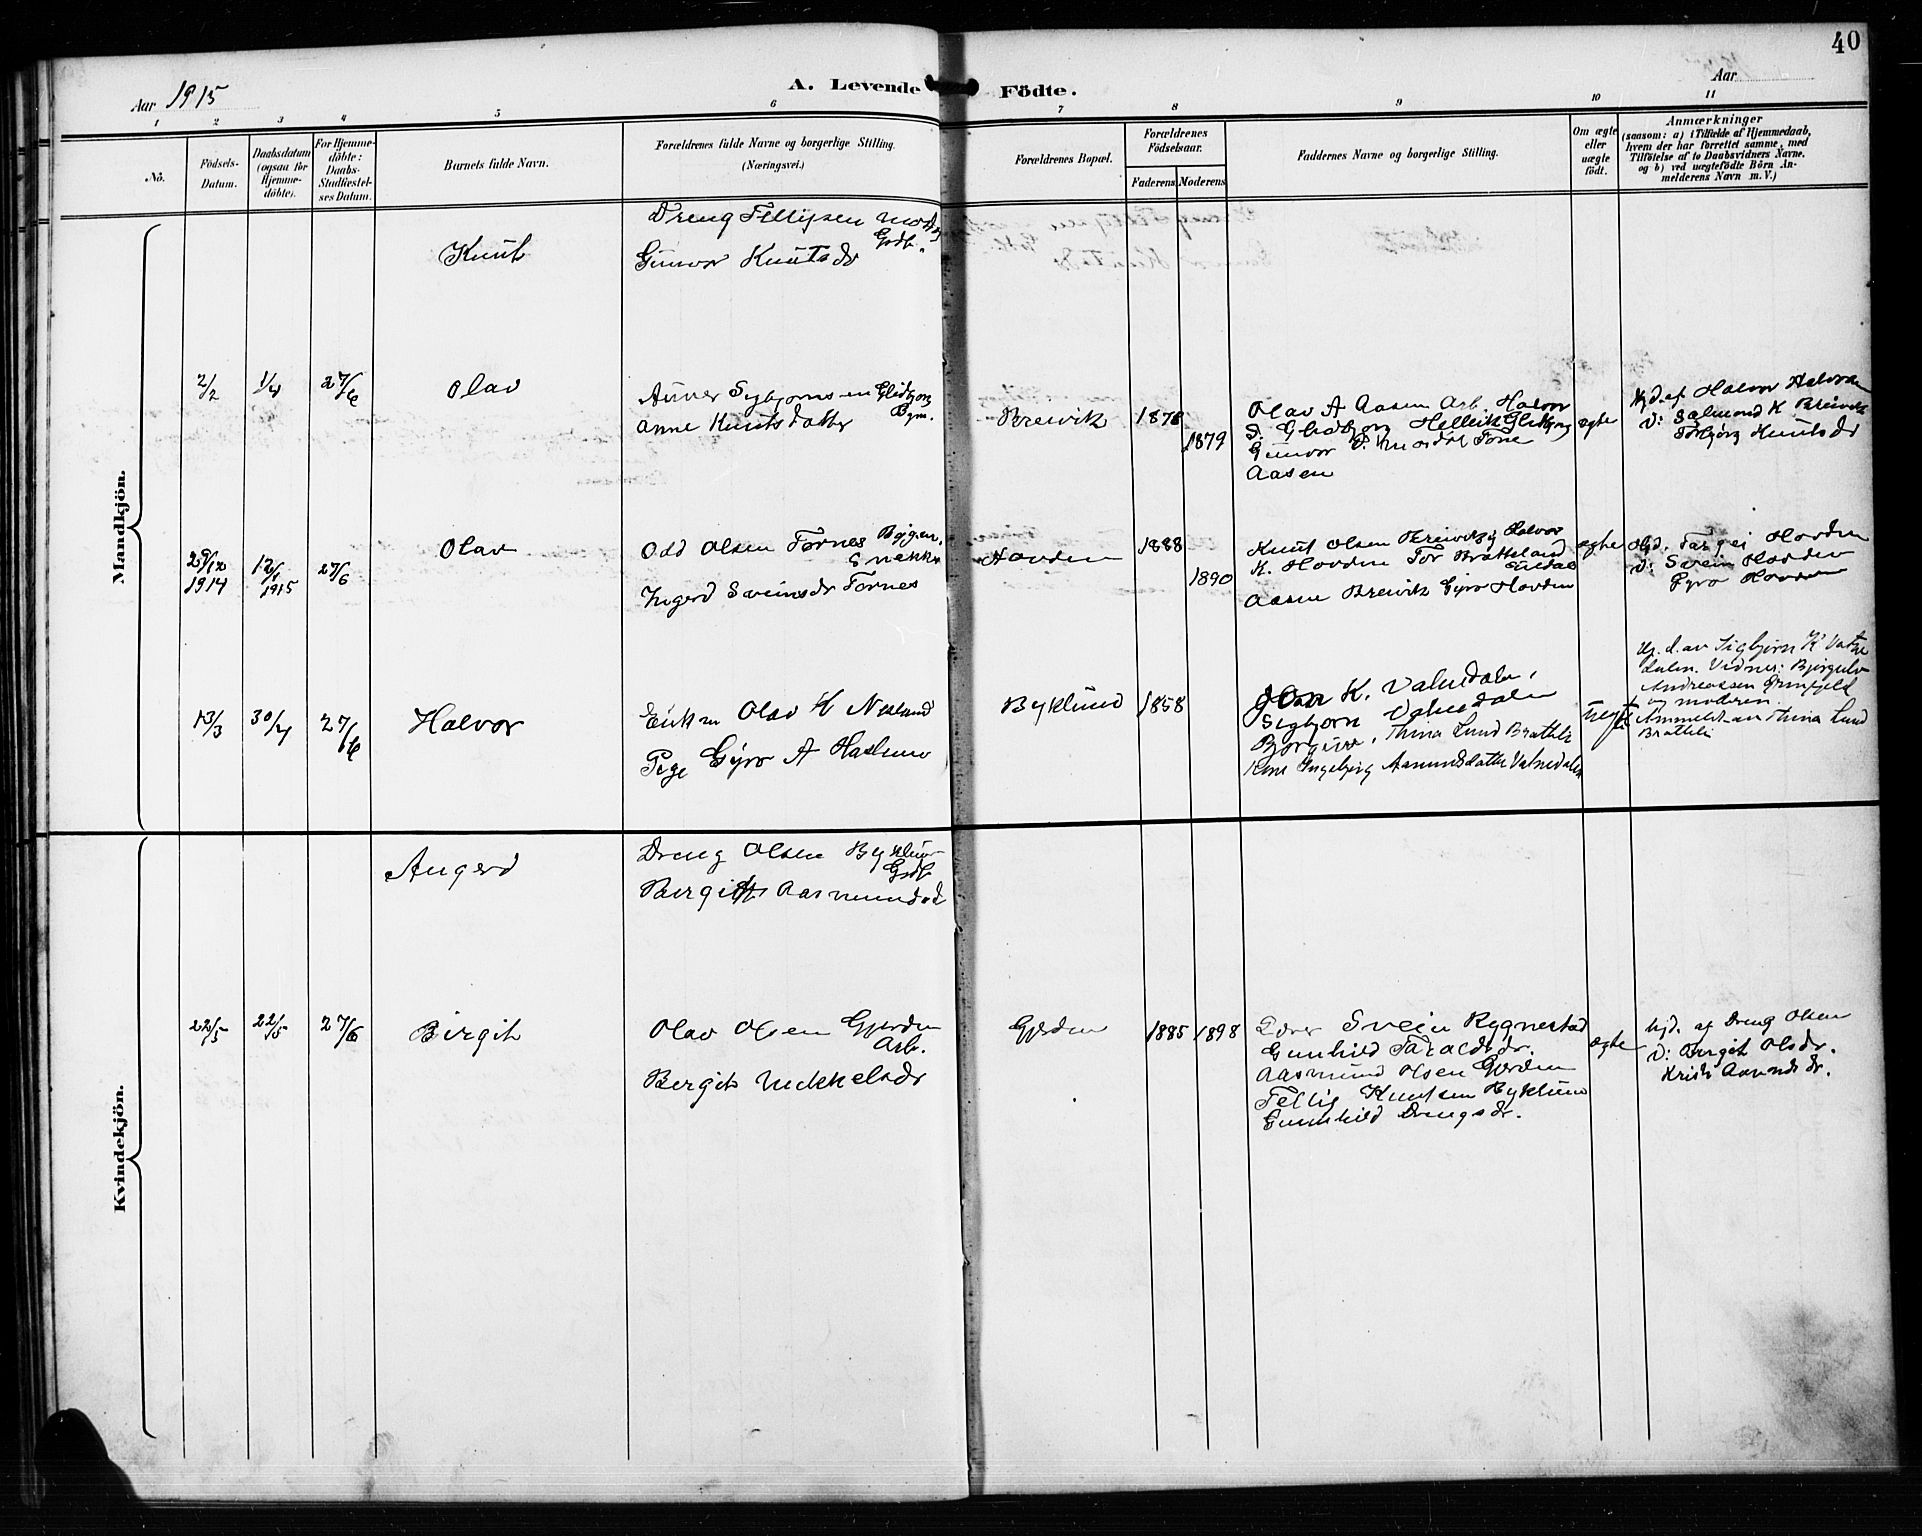 40
Aar 1915
A. Levende Födte.
Aar
1 2 3 4 5 6 7 8 9 10 11
No.
Födsels-
Datum.
Daabsdatum
(ogsaa for
Hjemme-
döbte).
For Hjemme-
döbte:
Daabs-
Stadfæstel-
ses Datum.
Barnets fulde Navn.
Forældrenes fulde Navne og borgerlige Stilling.
(Næringsvei.)
Forældrenes Bopæl.
Forældrenes
Födselsaar.
Faderens Moderens
Faddernes Navne og borgerlige Stilling.
Om ægte
eller
uægte
födt.
Anmærkninger
(saasom: a) i Tilfælde af Hjemmedaab,
hvem der har forrettet samme, med
Tilföielse af to Daabsvidners Navne.
og b) ved uægtefödte Börn An-
melderens Navn m. V.)
Mandkjön.
Knut
Dreng Fellijsen
Gdb.
Gunvor Knutsdr
2/2
1/4
27/6
Olav
Anne Knutsdatter
Breivik
1878
1879
Olav A Aasen Arb. Halvor
Gunvor
Aasen
ægte
Hjd. af Halvor Halvorsen
V: Salmund K Breivik
Torbjörg Knutsdr
29/12
1914
12/1
1915
27/6
Olav
Odd Olsen Fornes
Ingerd Sveinsdr Fornes
Hovden
1888
1890
Knut Olsen Breivik Halvor
K. Hovden Tor Bratteland
Aasne Breivik Gyro Hovden
ægte
Hjd. Targei Hovden
V: Svein Hovden
Gyro Hovden
13/3
30/4
27/6
Halvor
Enkem Olav K Nesland
Pige Gyro A
Byklum
1858
K. Vatnedalen,
Sigbjorn Vatnedalen
Thina Lund Bratteli
Ingebjörg Aamundsdatter Vatnedalen
uægte
Hj. d. av Sigbjörn K Vatne
dalen. Vidner: Björgulv
Andreassen
og moderen.
Anmeldt av Thina Lund
Bratteli
Kvindekjön.
Angerd
Dreng Olsen Byklum
Gdb
Birgit Aasmundsd
22/5
22/5
27/6
Birgit
Olav Olsen Gjerden
Arb.
Bergit Mikkelsdr
Gjerden
1885 1898
Svein Rygnestad
Gunhild Taraldsdr.
Aasmund Olsen Gjerden
Fellij Knutsen Byklum
Gunhild Drengsdr.
ægte
hjd. af Dreng Olsen
V: Birgit Olsdr.